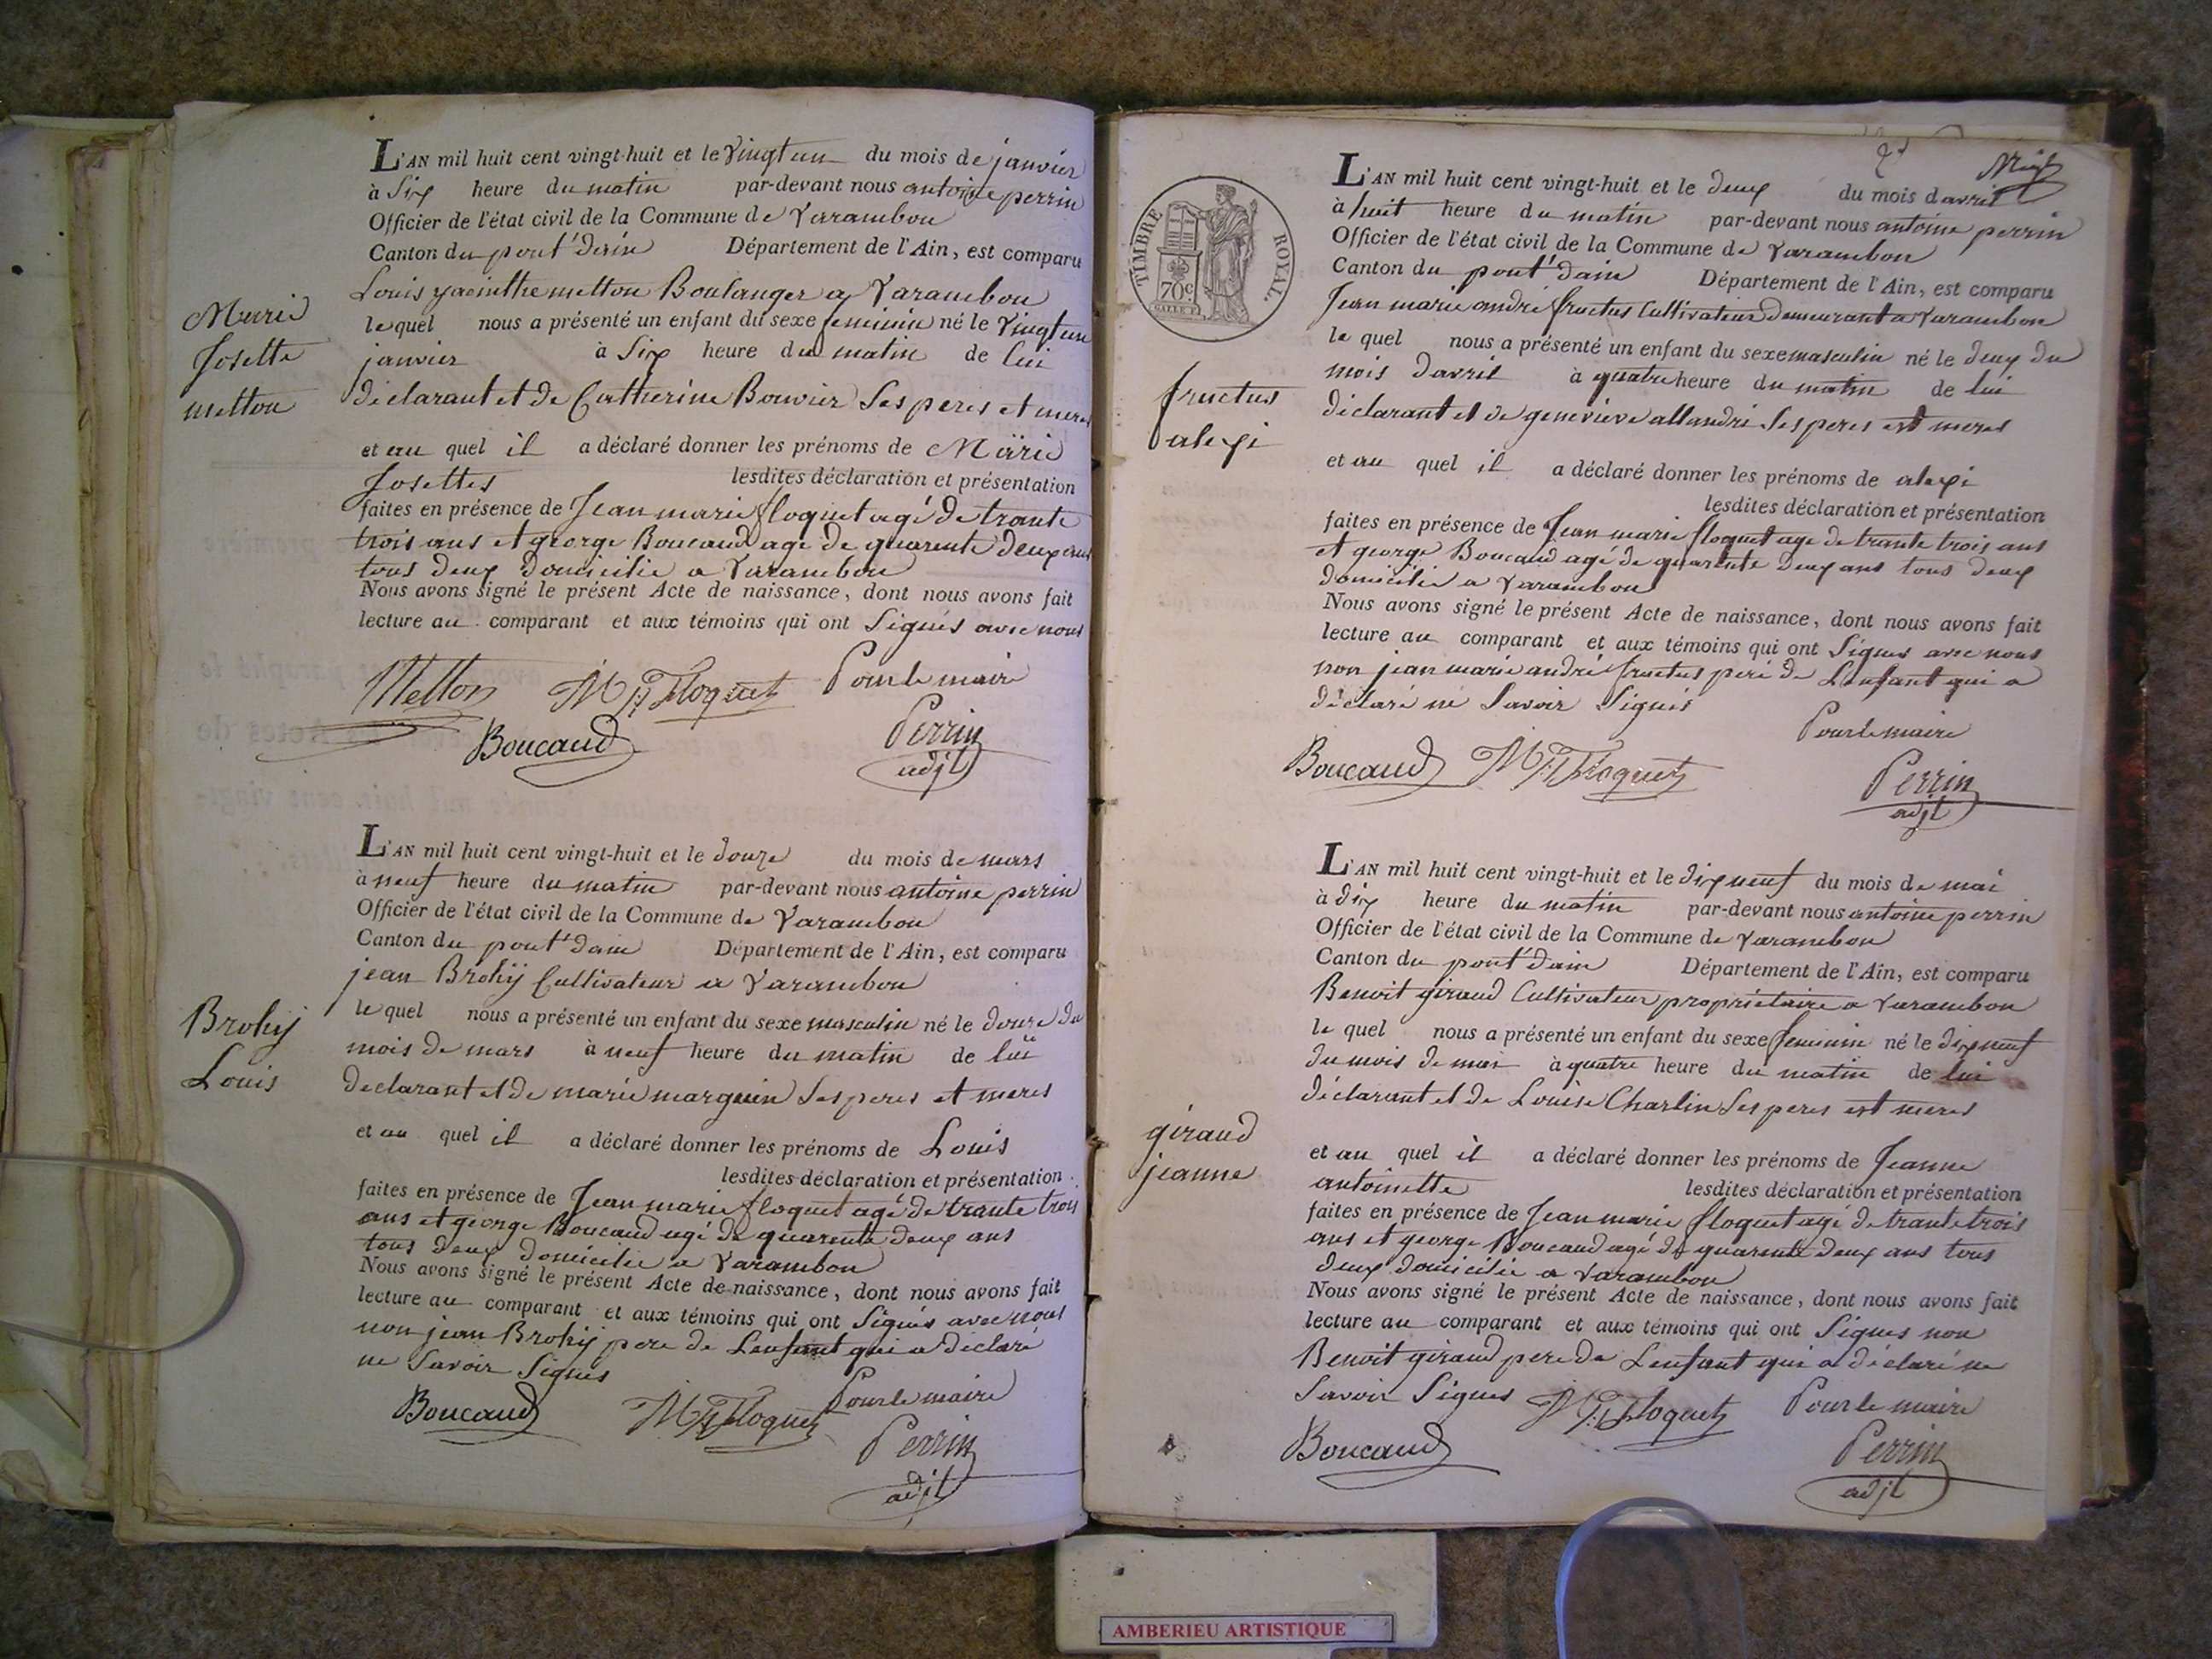 L'AN mil huit cent vingt-huit et le Vingt un du mois de janvier
à Six heure du matin par-devant nous antoine perrin
Officier de l'état civil de la Commune de Varambon
Canton du pont d'ain Département de l'Ain, est comparu
Louis yacinthe metton Boulanger a Varambon
le quel nous a présenté un enfant du sexe feminin né le Vingt un
janvier à Six heure du matin de lui
déclarant et de Catherine Bouvier Ses peres et meres
et au quel il a déclaré donner les prénoms de Marie
Josettes lesdites déclaration et présentation
faites en présence de Jean marie floquet agé de trante
trois ans et george Boucaud age de quarente deux ans
tous deux domicilie a Varambon
Nous avons signé le présent Acte de naissance, dont nous avons fait
lecture au comparant et aux témoins qui ont Signés avec nous
Marie
Josette
metton
Metton Floquet Pour le maire
Boucaud Perrin
adjt
L'AN mil huit cent vingt-huit et le douze du mois de mars
à neuf heure du matin par-devant nous antoine perrin
Officier de l'état civil de la Commune de Varambon
Canton du pont d'ain Département de l'Ain, est comparu
jean Brohÿ Cultivateur a Varambon
le quel nous a présenté un enfant du sexe masculin né le douze du
mois de mars à neuf heure du matin de lui
declarant et de marie marguin Ses peres et meres
et au quel il a déclaré donner les prénoms de Louis
lesdites déclaration et présentation
faites en présence de Jean marie floquet agé de trante trois
ans et george Boucaud agé de quarente deux ans
tous deux domicilie a Varambon
Nous avons signé le présent Acte de naissance, dont nous avons fait
lecture au comparant et aux témoins qui ont Signés avec nous
non jean Brohÿ pere de Lenfant qui a déclaré
ne Savoir Signés
Brohÿ
Louis
Boucaud Floquet Pour le maire
Perrin
adjt
L'AN mil huit cent vingt-huit et le deux du mois d'avril
à huit heure du matin par-devant nous antoine perrin
Officier de l'état civil de la Commune de Varambon
Canton du pont d'ain Département de l'Ain, est comparu
Jean marie andré fructus Cultivateur demeurant a Varambon
le quel nous a présenté un enfant du sexe masculin né le deux du
mois davril à quatre heure du matin de lui
déclarant et de genevieve allandré Ses peres est meres
et au quel il a déclaré donner les prénoms de alexi
lesdites déclaration et présentation
faites en présence de Jean marie floquet age de trante trois ans
et george Boucaud agé de quarente deux ans tous deux
domicilie a Varambon
Nous avons signé le présent Acte de naissance, dont nous avons fait
lecture au comparant et aux témoins qui ont Signes avec nous
non jean marie andré fructus pere de Lenfant qui a
déclaré né Savoir Signés
TIMBRE ROYAL.
70c
fructus
alexi
Pour le maire
Boucaud Floquet Perrin
adjt
L'AN mil huit cent vingt-huit et le dix neuf du mois de mai
à dix heure du matin par-devant nous antoine perrin
Officier de l'état civil de la Commune de Varambon
Canton du pont d'ain Département de l'Ain, est comparu
Benoit giraud Cultivateur proprietaire a Varambon
le quel nous a présenté un enfant du sexe feminin né le dix neuf
du mois de mai à quatre heure du matin de lui
déclarant et de Louise Charlin Ses peres est meres
et au quel il a déclaré donner les prénoms de Jeanne
antoinette lesdites déclaration et présentation
faites en présence de Jean marie floquet agé de trante trois
ans et george Boucaud agé de quarente deux ans tous
deux domicilie a Varambon
Nous avons signé le présent Acte de naissance, dont nous avons fait
lecture au comparant et aux témoins qui ont Signes non
Benoit giraud pere de Lenfant qui a déclaré ne
Savoir Signes
giraud
jeanne
Floquet Pour le maire
Boucaud Perrin
adjt
AMBERIEU ARTISTIQUE